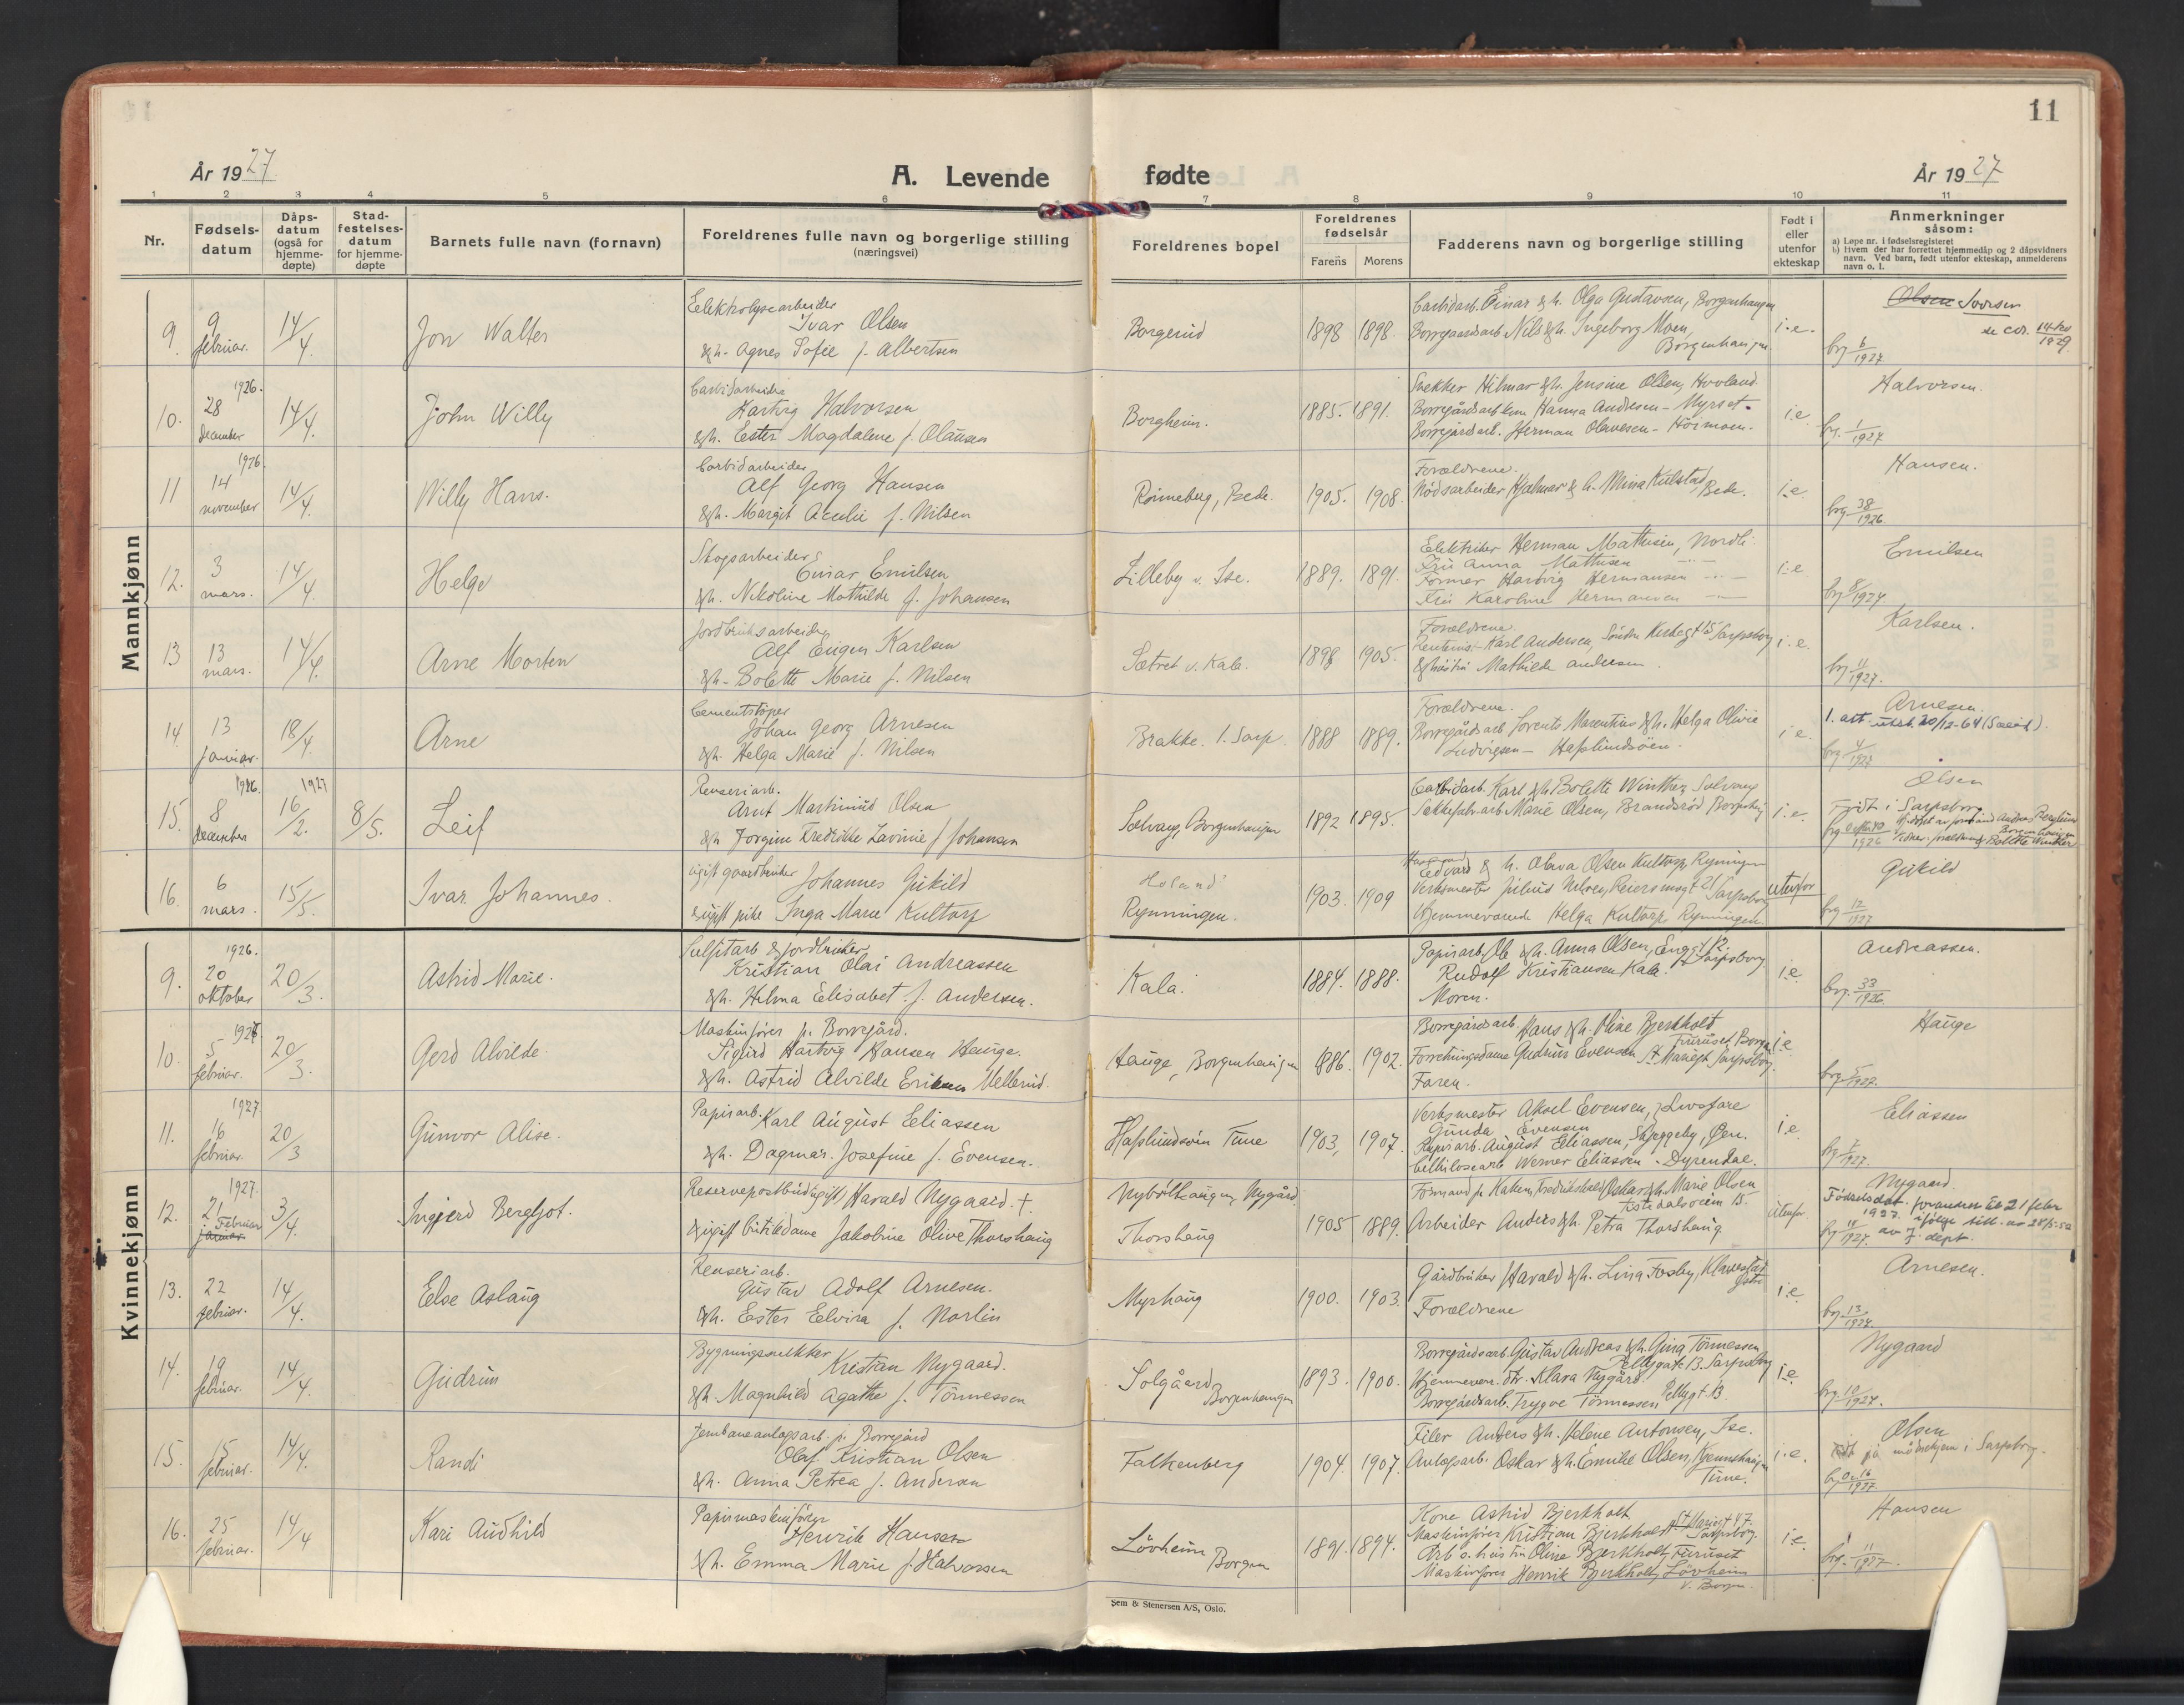 11
År 1927.
A. Levende fødte
År 1927
1 2 3 4 5 6 7 8 9 10 11
Nr.
Fødsels-
datum
Dåps-
datum
(også for
hjemme-
døpte)
Stad-
festelses-
datum
for hjemme-
døpte
Barnets fulle navn (fornavn)
Foreldrenes fulle navn og borgerlige stilling
(næringsvei)
Foreldrenes bopel
Foreldrenes
fødselsår
Farens Morens
Fadderens navn og borgerlige stilling
Født i
eller
utenfor
ekteskap
Anmerkninger
såsom:
a) Løpe nr. i fødselsregisteret
b) Hvem der har forrettet hjemmedåp og 2 dåpsvidners
navn. Ved barn, født utenfor ekteskap, anmelderens
navn o. l.
Mannkjønn
9. 9 februar. 14/4. Jon Walter
Elektrolysearbeider
Ivar Olsen
&h. Agnes Sofie f. Albertsen
Borgerud 1898 1898.
Carbidarb. Einar &h. Olga Gustavsen, Borgenhaugen
Borregaardsarb. Nils &h. Ingeborg Moen,
Borgenhaugen.
i.e.
Olsen Iversen
brg 6/1927
10. 1926. 28 december 14/4. John Willy
Carbidarbeider
Hartvig Halvorsen
&h. Ester Magdalene f. Olausen
Borgheim. 1885. 1891.
Snekker Hilmar &h. Jensine Olsen, Hovland
Borregårdsarb. Hanna Andresen - Myrset.
Borregårdsarb. Herman Olavesen - Höimoen.
i.e.
Halvorsen.
brg. 1/1927
11 1926. 14 november 14/4. Willy Hans.
Carbidarbeider
Alf Georg Hansen
&h. Margit f. Nilsen
Rönneberg, Bede. 1905. 1908.
Forældrene.
Nödsarbeider Hjalmar & h. Mina Kulstad, Bede.
i.e.
Hansen.
brg 38/1926.
12. 3 mars. 14/4. Helge
Skogsarbeider
Einar Emilsen
&h. Nikoline Mathilde f. Johansen
Lilleby v. Ise. 1889. 1891.
Elektriker Herman Mathisen, Nordli
Fru Anna Mathisen
Former Hartvig Hermansen
Fru Karoline Hermansen
i.e.
Emilsen
brg 8/1927.
13 13 mars. 14/4. Arne Morten
Jordbruksarbeider
Alf Eugen Karlsen
&h. Bolette Marie f. Nilsen
Sætret v. Kala. 1898 1905.
Forældrene
Karl Andersen, Sarpsborg
&hustru Mathilde Andersen.
i.e.
Karlsen.
brg. 11/1927.
14 13 januar. 18/4. Arne
Cementstøper
Johan Georg Arnesen
&h. Helga Marie f. Nilsen
Brakke. 1. Sarp. 1888 1889.
Forældrene.
Borregårdsarb. Lorents Marentius &h. Helga Olivie
Ludvigsen - Hafslundsöen.
i.e.
Arnesen.
1. att. utst. 20/12-64
brg 4/1927
15. 1926. 8 december 1927 16/2. 8/5. Leif
Renseriarb.
Arnt Martinius Olsen
&h Jorgine Fredrikke Lavinie f Johansen
Solvang, Borgenhaugen 1892 1895.
Carbidarb. Karl &h Bolette Winther, Solvang
Marie Olsen, Brandsröd, Borgenhaug
i.e.
Olsen
Født i Sarpsborg
16. 6 mars. 15/5. Ivar Johannes.
ugift gaardbruker Johannes Gukild
& ugift pike Inga Marie Kultorp
Holand
Rynningen. 1903. 1909
Edvard & h. Olava Olsen Kultorp, Rynningen
Verksmester Julius Nilsen, Reiersmogt 21 Sarpsborg
Hjemmeværende Helga Kultorp Rynningen
utenfor
Gukild
brg 12/1927
Kvinnekjønn
9. 1926. 20 oktober 20/3. Astrid Marie.
Sulfitarb. & jordbruker
Kristian Olai Andreassen
&h. Hilma Elisabet f. Andersen.
Kala. 1884. 1888.
Papirarb. Ole &h. Anna Olsen, Sarpsborg
Rudolf Kristiansen Kala.
Moren.
i.e.
Andreassen.
brg. 33/1926.
10. 1927. 5 februar. 20/3. Gerd Alvilde.
Maskinfører p. Borregård.
Sigurd Hartvig Hansen Hauge.
&h. Astrid Alvilde Eriksen Mellerud.
Hauge, Borgenhaugen 1886. 1902.
Borregårdsarb. Hans &h. Oline Bjerkholt
Furuset, Borgen
Forretningsdame Gudrun Evensen St. Mariegt. Sarpsborg.
Faren.
i.e.
Hauge
brg 5/1927.
11. 1927. 16 februar. 20/3 Gunvor Alise.
Papirarb. Karl August Eliassen
&h. Dagmar Josefine f. Evensen.
Hafslundsöen Tune 1903, 1907.
Verksmester Aksel Evensen,
Gunda Evensen
Papirarb. August Eliassen, Skjeggeby, Øen.
Cellulosearb Werner Eliassen - Dyrendal.
i.e.
Eliassen
brg 7/1927.
12. 1927. 21 Februar januar 3/4. Ingjerd Bergljot.
Reservepostbud ugift Harald Nygaard. +
& ugift butikdame Jakobine Olive Thorshaug
Nyböthaugen, Nygård
Thorshaug 1905 1889.
Formand p. Kaken, Fredrikshald Oskar &h. Marie Olsen
Tistedalsveien 15.
Arbeider Anders &h. Petra Thorshaug
utenfor
Nygaard.
Födselsdat. forandret til 21 febr
1927. ifölge till. av 28/5-52
av J. dept.
brg 11/1927.
13. 22 februar. 14/4. Else Aslaug
Renseriarb.
Gustav Adolf Arnesen.
&h. Ester Elvira f. Norlin
Myrhaug 1900. 1903.
Gårdbruker Harald &h. Lina Fosby, Klavestad
Forældrene
i.e.
Arnesen.
brg 13/1927.
14. 19 februar. 14/4. Gudrun
Bygningssnekker Kristian Nygaard.
&h. Magnhild Agathe f. Tönnessen
Solgåard Borgenhaugen 1893. 1900.
Borregårdsarb. Gustav Andreas &h. Gina Tönnessen
Pellygate 13. Sarpsborg
Hjemmevær. dtr. Klara Nygård.
Borregårdsarb. Trygve Tönnessen Pellygt 13
i.e.
Nygaard
brg. 10/1927.
15. 15 februar. 14/4. Randi
Jernbaneanlægsarb. p. Borregård
Olaf Kristian Olsen
&h. Anna Petrea f. Andersen
Falkenberg 1904. 1907.
Filer Anders &h. Helene Antonsen, Ise.
Anlægsarb. Oskar &h. Emilie Olsen,
Tune.
i.e.
Olsen
Född på mödrehjem i Sarpsborg.
16. 25 februar. 14/4 Kari Audhild
Papirmaskinfører
Henrik Hansen
&h. Emma Marie f. Halvorsen
Lövheim Borgen 1891. 1894.
Kone Astrid Bjerkholt
Maskinfører Kristian Bjerkholt St. Mariegt 47. Sarpsborg.
Arb. o. hustru Oline Bjerkholt, Furuset
Maskinfører Henrik Bjerkholt, Lövheim
v. Borgen.
i.e.
Hansen
brg. 11/1927.
Sem & Stenersen A/S, Oslo.